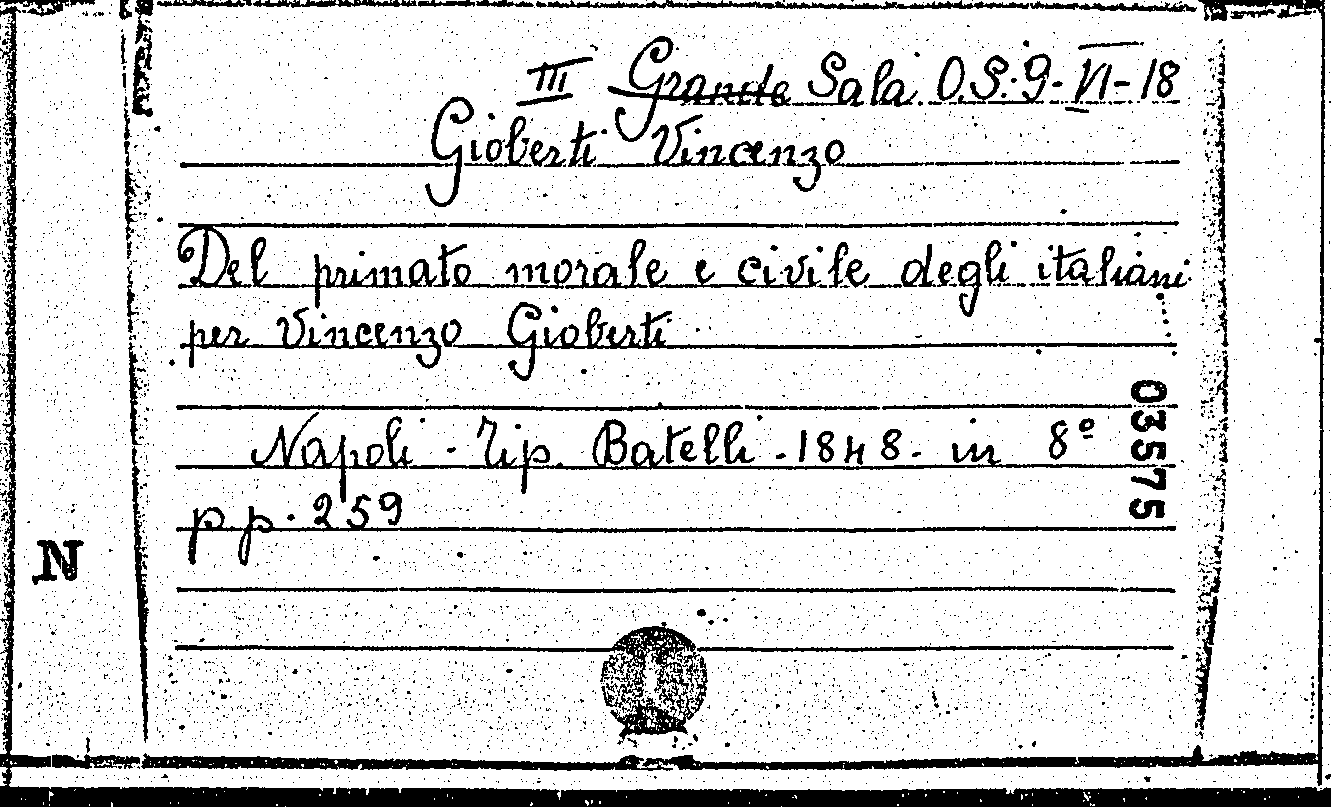 III Grande Sala O.S.9-VI-18
Gioberti Vincenzo
Del primato morale e civile degli italiani
per Vincenzo Gioberti
Napoli - Tip. Batelli - 1848 - in 8º
pp. 259
03575
N